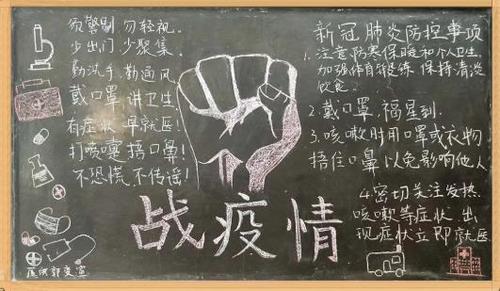 须警惕 勿轻视
少出门 少聚集
勤洗手 勤通风
戴口罩 讲卫生
有症状 早就医!
打喷嚏 捂口鼻!
不恐慌 不传谣!
战疫情
新冠肺炎防控事项
1.注意防寒保暖和个人卫生
加强体育锻练 保持清淡
饮食?
2.戴口罩,福星到.
3.咳嗽时用口罩或衣物
捂住口鼻以免影响他人
4.密切关注发热
咳嗽等症状 出
现症状立即就医